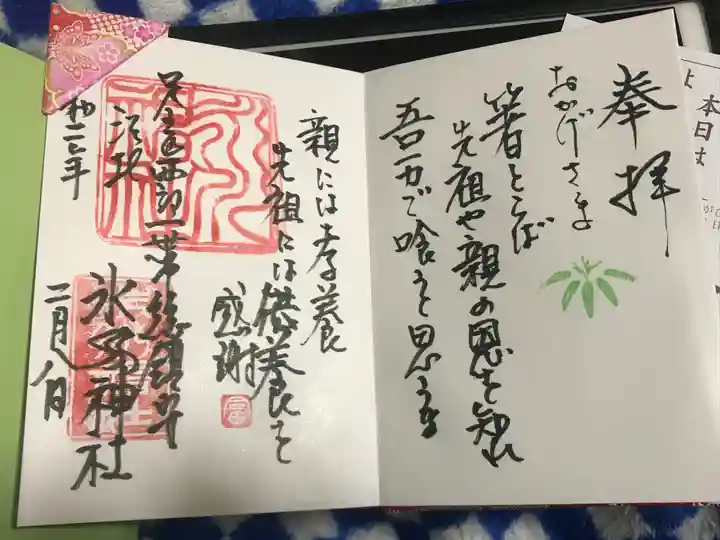 奉拝
おかげさま
箸とらば
先祖や親の恩を知れ
吾一力で喰うと思うな
親には孝養
先祖には供養を
感謝
足立西部一帯総鎮守
江北
氷川神社
二月八日
本日は